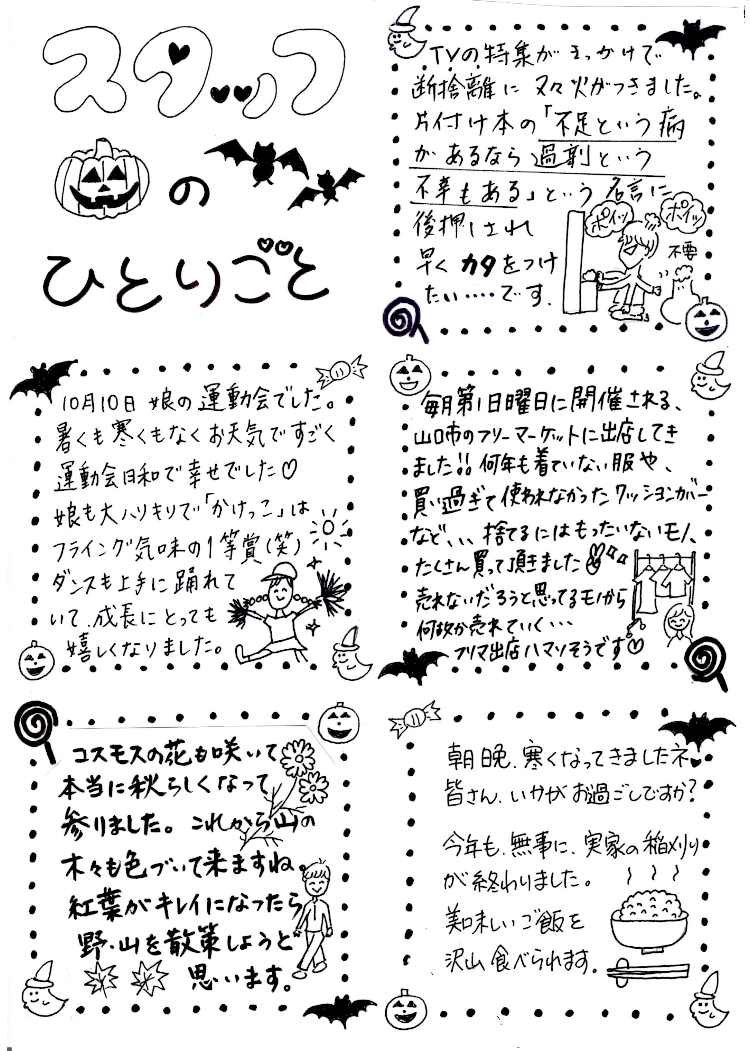 スタッフ
の
ひとりごと
TVの特集がきっかけで
断捨離に又々火がつきました。
片付け本の「不足という病
があるなら過剰という
不幸もある」という名言に
後押しされ
早くカタをつけ
たい‥‥です.
ポイッ
ポイッ
不要
10月10日娘の運動会でした。
暑くも寒くもなくお天気ですごく
運動会日和で幸せでした♡
娘も大ハリキリで「かけっこ」は
フライング気味の1等賞(笑)
ダンスも上手に踊れて
いて、成長にとっても
嬉しくなりました。
毎月第1日曜日に開催される、
山口市のフリーマーケットに出店してき
ました!!何年も着ていない服や、
買い過ぎて使われなかったクッションカバー
など、、、捨てるにはもったいないモノ、
たくさん買って頂きました
売れないだろうと思ってるモノから
何故か売れていく…
フリマ出店ハマリそうです♡
コスモスの花も咲いて
本当に秋らしくなって
参りました。これから山の
木々も色づいて来ますね。
紅葉がキレイになったら
野・山を散策しようと
思います。
朝晩、寒くなってきましたネ
皆さん、いかがお過ごしですか?
今年も、無事に、実家の稲刈り
が終わりました。
美味しいご飯を
沢山食べられます.